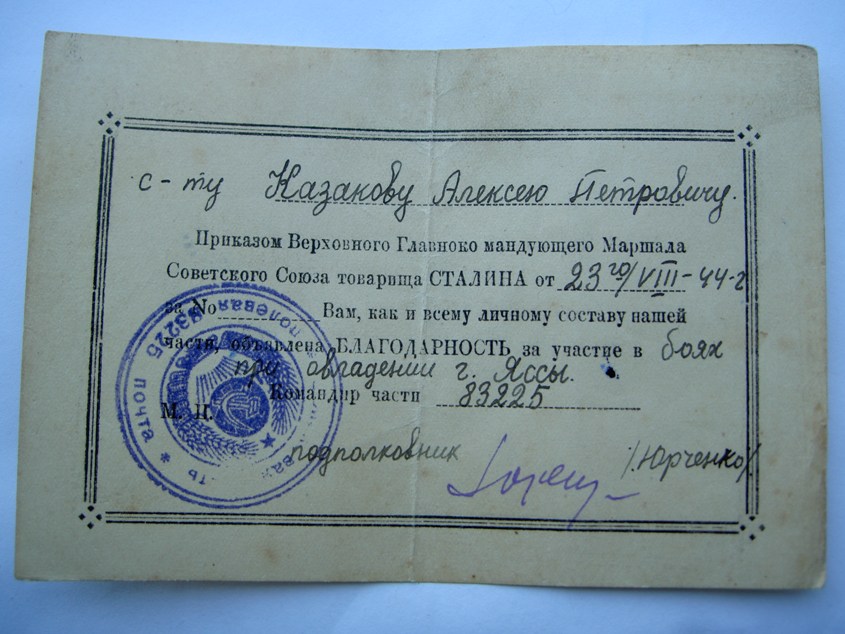 с-ту Казакову Алексею Петровичу.
Приказом Верховного Главноко мандующего Маршала
Советского Союза товарища СТАЛИНА от 23го/VIII-44-г
за No Вам, как и всему личному составу нашей
части, объявлена БЛАГОДАРНОСТЬ за участие в боях
при овладении г. Яссы.
Командир части 83225
М. П.
подполковник /Юрченко/
полевая почта 83225